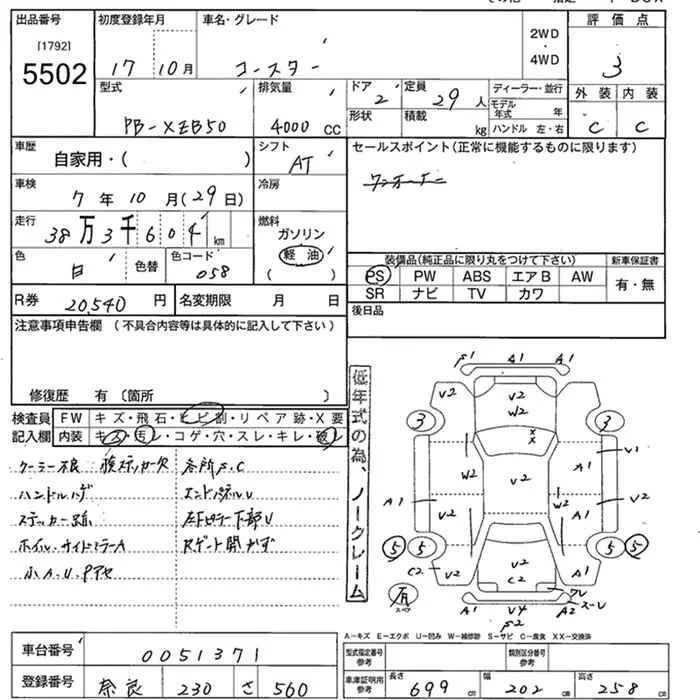 出品番号 初度登録年月 車名・グレード 2WD・4WD 評価点
[1792]
5502 17 10月 コースター 3
型式 排気量 ドア 2 定員 29人 ディーラー・並行 外装 内装
PB-XZB50 4000 CC 形状 積載 kg モデル年式 年 C C
ハンドル 左・右
車歴 自家用・( ) シフト AT セールスポイント(正常に機能するものに限ります)
車検 7年 10月(29日) 冷房 ワンオーナー
走行 38万3千604 km 燃料 ガソリン 軽油 ( )
色 白 色替 色コード 058
装備品(純正品に限り丸をつけて下さい) 新車保証書
PS PW ABS エアB AW 有・無
SR ナビ TV カワ
R券 20,540円 名変期限 月 日 後日品
注意事項申告欄 (不具合内容等は具体的に記入して下さい)
修復歴 有 〔箇所 〕
検査員記入欄 FW キズ・飛石・ヒビ割・リペア跡・X要
内装 キズ・汚レ・コゲ・穴・スレ・キレ・破レ
クーラー不良 横ステッカー欠 各所F.C
ハンドルハゲ エンドパネルU
ステッカー跡 左Fピラー下部U
ホイル・サイドミラーA Rゲート開かず
小A.U.Pアセ
低年式の為、ノークレーム
F1 A1 A1
V2 V2 V2
W2
3 3
X
X
V1
W2 V2 A1
A1 V2 W2 A1 V2
5 5 5 5
C2 V2 V2 C2 A1
ワレ
有 スペア A1 V4 A2 スーレ
F2
A－キズ E－エクボ U－凹み W－補修跡 S－サビ C－腐食 XX－交換済
車台番号 0051371 型式指定番号 参考 類別区分番号 参考
登録番号 奈良 230 さ 560 車庫証明用 参考 長さ 699 cm 幅 202 cm 高さ 258 cm